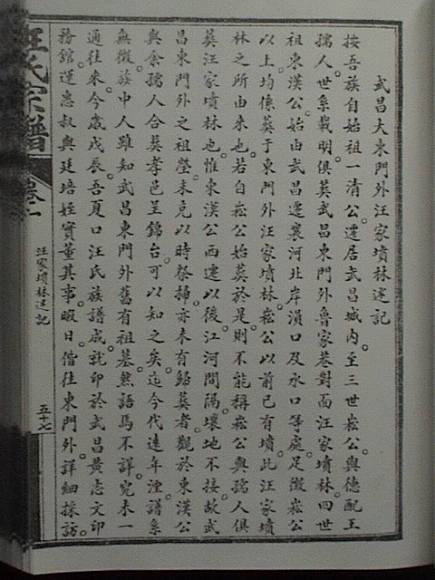 武昌大東門外汪家墳林述記
按吾族自始祖一清公遷居武昌城內至三世崧公與德配王
孺人世系載明俱葬武昌東門外魯家巷對面汪家墳林四世
祖東漢公始由武昌遷寞河北岸溳口及水口等處足徵崧公
以上均係葬于東門外汪家墳林崧公以前已有墳此汪家墳
林之所由來也若自崧公始葬於是則不能稱崧公與孺人俱
葬汪家墳林也惟東漢公西遷以後江河間隔壤地不接故武
昌東門外之祖塋未克以時祭掃亦未有歸葬者觀於東漢公
與余孺人合葬孝邑呈錦台可以知之矣迄今代遠年湮譜系
無徵族中人雖知武昌東門外舊有祖墓然語焉不詳究未一
通往來今歲戊辰吾夏口汪氏族譜成就印於武昌黃志文印
務館運惠叔與廷培姪實董其事暇日偕往東門外詳細採訪
汪氏宗譜
卷一
汪家墳林述記
五十七